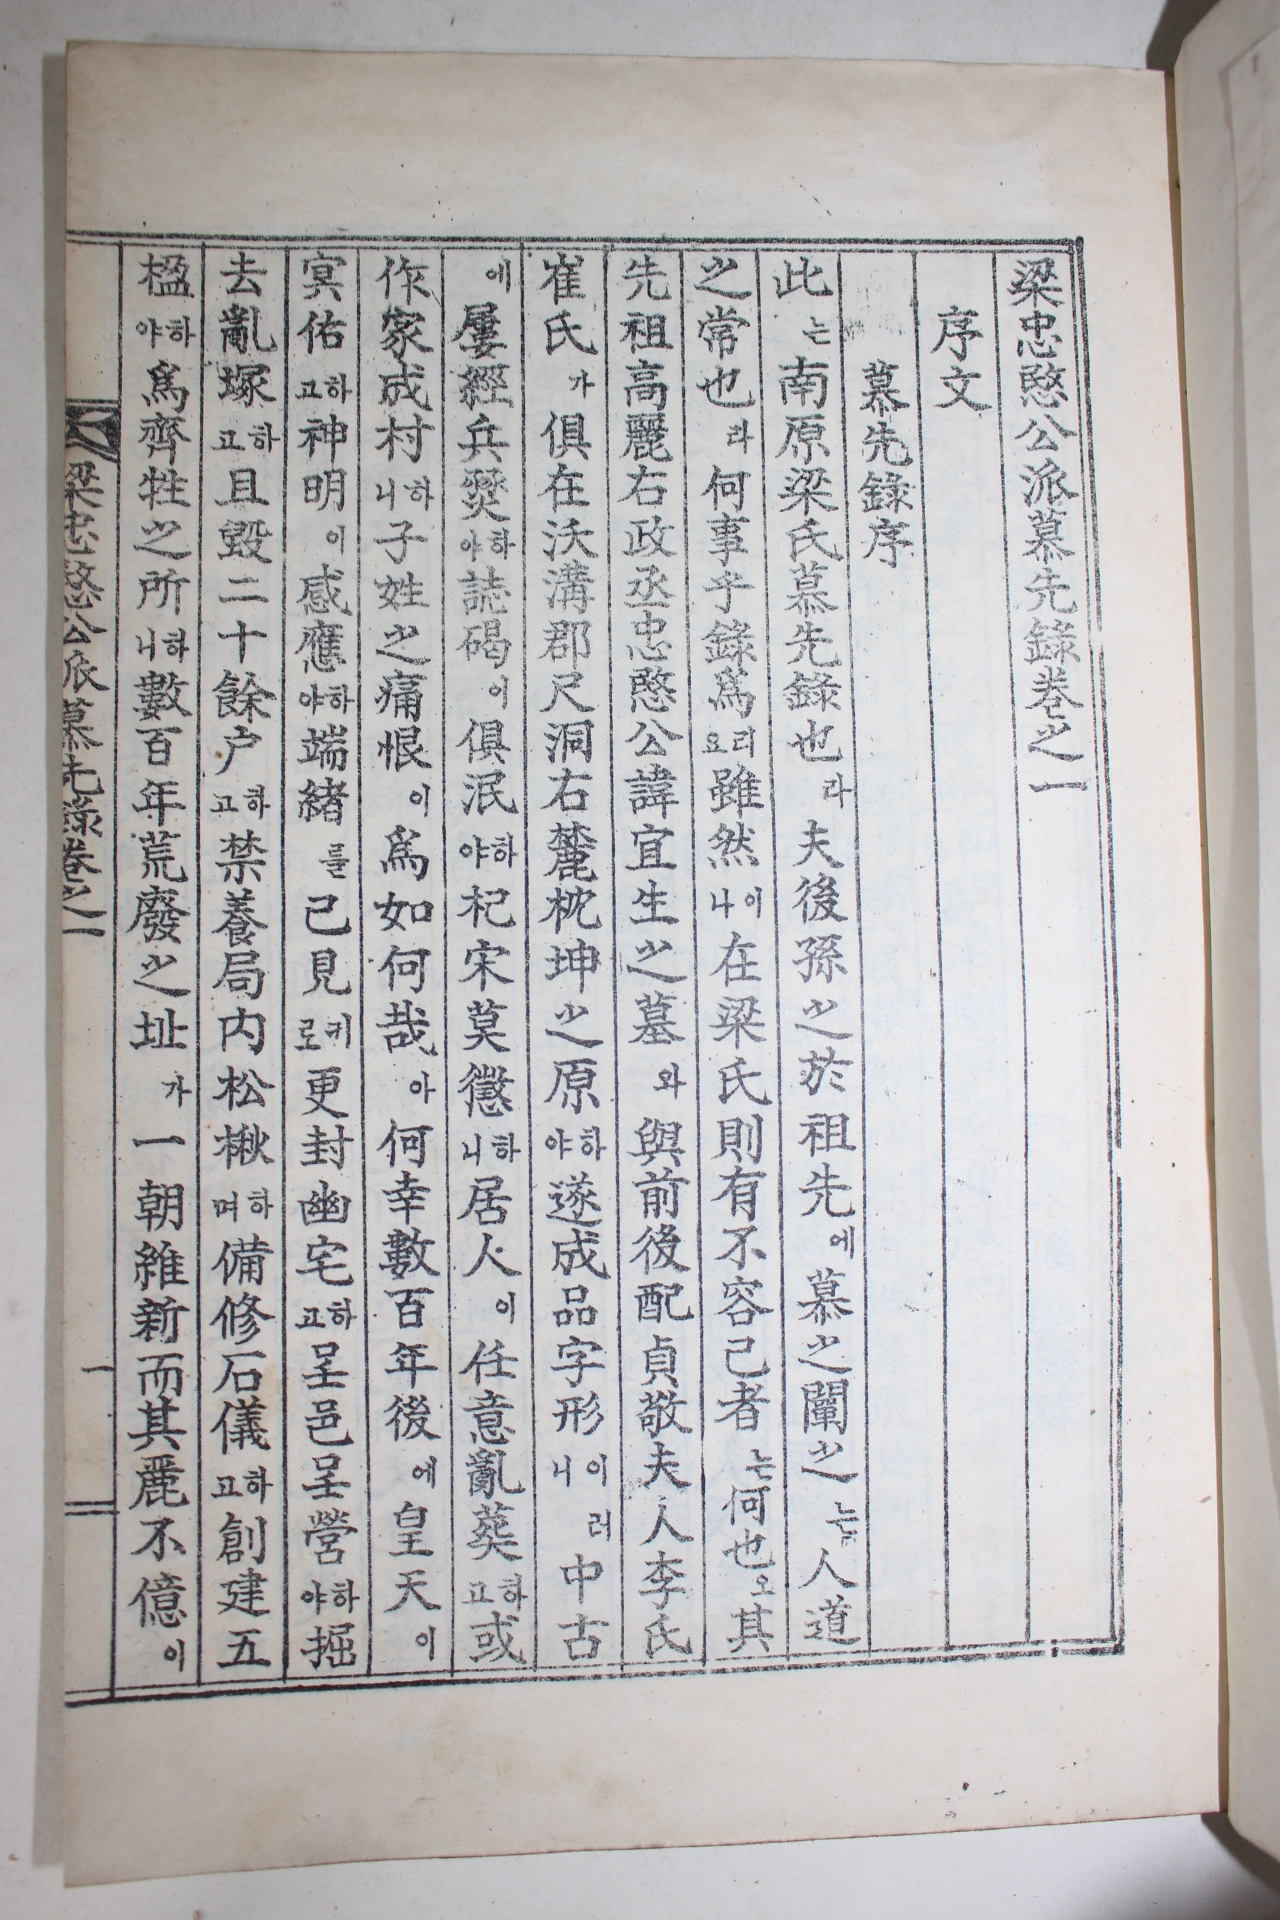 梁忠愍公派慕先錄卷之一
序文
慕先錄序
此는南原梁氏慕先錄也라夫後孫之於祖先에慕之闡之는人道
之常也라何事乎錄爲리요雖然이나在梁氏則有不容己者는何也오其
先祖高麗右政丞忠愍公諱宜生之墓와與前後配貞敬夫人李氏
崔氏가俱在沃溝郡尺洞右麓枕坤之原하야遂成品字形이니러中古
에屢經兵燹하야誌碣이俱泯하야杞宋莫懲하니居人이任意亂葬하고或
作家成村하니子姓之痛恨이爲如何哉아何幸數百年後에皇天이
冥佑하고神明이感應하야端緖를己見키로更封幽宅하고呈邑呈營하야掘
去亂塚하고且毀二十餘户하고禁養局内松楸하며備修石儀하고創建五
楹하야爲齊牲之所하니數百年荒廢之址가一朝維新而其麗不億이
梁忠愍公派慕先錄卷之一
一